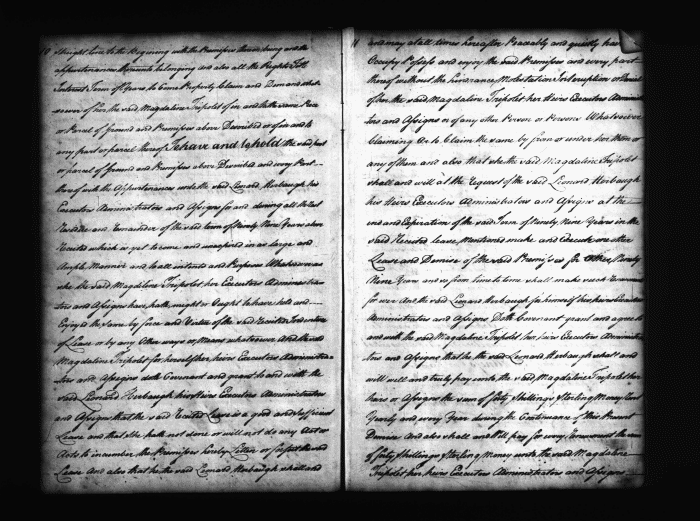 10 straight line to the Begining with the Premises thereunto and the
appurtenances thereunto belonging and also all the Right Title
Interest Term of Years to Come Property Claim and Demand whatsoever
of her the said Magdaline Tripolet of in and to the same Piece
or Parcel of Ground and Premises above Demised or of in and to
any part or parcel thereof To have and to hold the said part
or parcel of Ground and Premises above Demised and every Part
thereof with the Appurtenances unto the said Leonard Harbaugh his
Executors Administrators and Assigns for and during all the Rest
Residue and remainder of the said term of Ninety Nine Years above
Recited which is yet to come and unexpired in as large and
Ample Manner and to all intents and Purposes Whatsoever as
she the said Magdaline Tripolet her Executors Administrators
and Assigns have hath might or Ought to have held and
Enjoyed the same by force and Virtue of the said Recited Indenture
of Lease or by any Other ways or Means whatsoever And the said
Magdaline Tripolet for herself her heirs Executors Administra
tors and Assigns doth Covenant and grant to and with the
said Leonard Harbaugh his Heirs Executors Administrators
and Assigns that the said Recited Lease is a good and sufficient
Lease and that she hath not done or will not do any Act or
Acts to incumber the Premises hereby Letten or forfeit the said
Lease And also that he the said Leonard Harbaugh shall and
11 and may at all times hereafter Peaceably and quietly have
Occupy Possess and enjoy the said Premises and every part
thereof without the hindrance Molestation Interruption or Denial
of her the said Magdaline Tripolet her Heirs Executors Adminis
tors and Assigns or of any other Person or Persons Whatsoever
Claiming Or to Claim the same by from or under her them or
any of them and also that she the said Magdaline Tripolet
shall and will at the Request of the said Leonard Harbaugh
his Heirs Executors Administrators and Assigns at the
end and Expiration of the said Term of Ninety Nine Years in the
said Recited Lease Mentioned make and Execute one other
Lease and Demise of the said Premises for Other Ninety
Nine Years and so from time to time shall make such Renewments
for ever And the said Leonard Harbaugh for himself his heirs Executors
Administrators and Assigns Doth Covenant grant and agree to
and with the said Magdaline Tripolet her heirs Executors Administra
tors and Assigns that he the said Leonard Harbaugh shall and
will well and truly pay unto the said Magdaline Tripolet her
heirs or Assigns the sum of Sixty Shillings Sterling Money Rent
Yearly and every Year during the Continuance of this Present
Demise And also shall and will pay for every Renewment the sum
of Sixty Shillings Sterling Money unto the said Magdaline
Tripolet her heirs Executors Administrators and Assigns